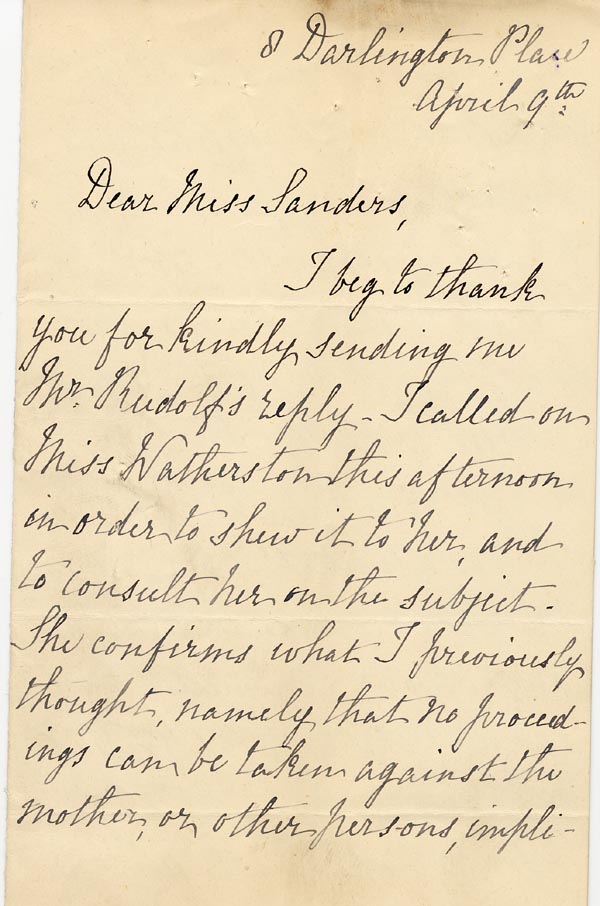 8 Darlington Place
April 9th
Dear Miss Sanders,
I beg to thank
you for kindly sending me
Mr. Rudolf's reply - I called on
Miss Watherston this afternoon
in order to shew it to her, and
to consult her on the subject -
She confirms what I previously
thought, namely that no proceed-
ings can be taken against the
mother, or other persons, impli-